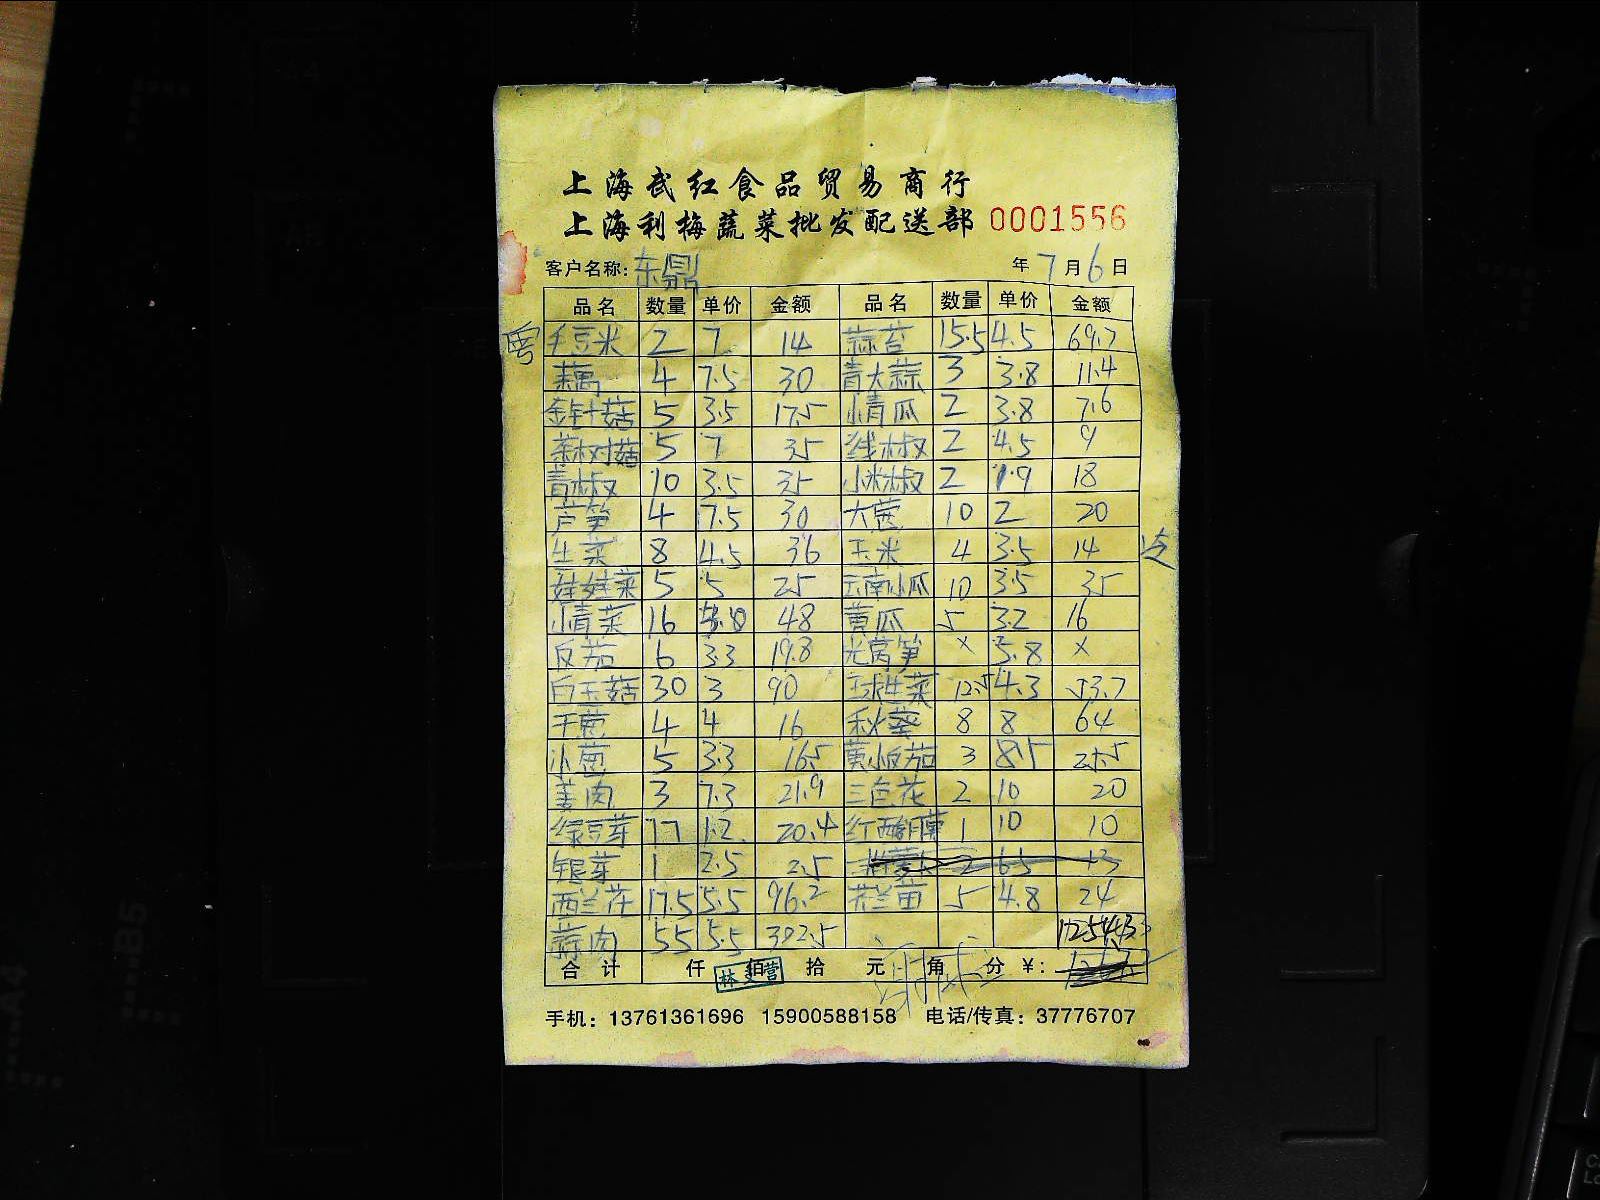 上海武红食品贸易商行
上海利梅蔬菜批发配送部 0001556
客户名称: 东鼎 年 7 月 6 日
品名 数量 单价 金额 品名 数量 单价 金额
毛豆米 2 7 14 蒜苔 15.5 4.5 69.7
藕 4 7.5 30 青大蒜 3 3.8 11.4
金针菇 5 3.5 17.5 小青瓜 2 3.8 7.6
茶树菇 5 7 35 线椒 2 4.5 9
青椒 10 3.5 35 小米椒 2 9 18
芦笋 4 7.5 30 大葱 10 2 20
生菜 8 4.5 36 玉米 4 3.5 14
娃娃菜 5 5 25 云南小瓜 10 3.5 35
小青菜 16 48 黄瓜 5 3.2 16
反茄 6 3.3 19.8 光莴笋 × 5.8 ×
白玉菇 30 3 90 球生菜 12.5 4.3 53.7
干葱 4 4 16 秋葵 8 8 64
小葱 5 3.3 16.5 黄小反茄 3 8.5 25.5
姜肉 3 7.3 21.9 三色花 2 10 20
绿豆芽 17 1.2 20.4 红酸膜 1 10 10
银芽 1 2.5 2.5 2 6.5 13
西兰花 17.5 5.5 96.2 芥兰苗 5 4.8 24
蒜肉 55 5.5 302.5
合计 仟 佰 拾 元 角 分 ¥:
手机: 13761361696 15900588158 电话/传真: 37776707